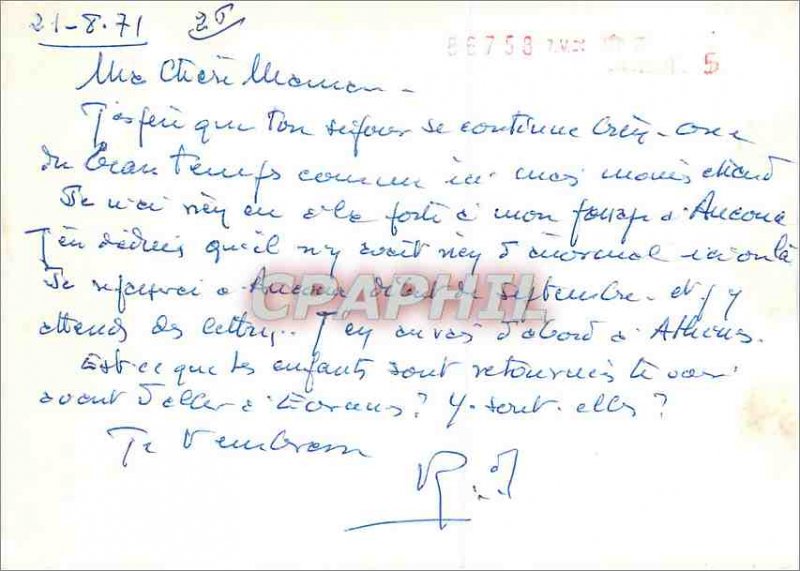 21-8.71
86758
5
Ma Chère Maman -
J'espère que ton séjour se continue bien - avec
du beau temps comme ici mais moins chaud
Je n'ai rien eu à la poste à mon passage à Ancona
J'en déduis qu'il n'y avait rien d'anormal ici ou là
Je repasserai à Ancona début de Septembre - et j'y
attends des lettres.. J'en aurai d'abord à Athènes.
Est-ce que les enfants sont retournés te voir
avant d'aller à ? Y sont-elles ?
Je t'embrasse
CPAPHIL